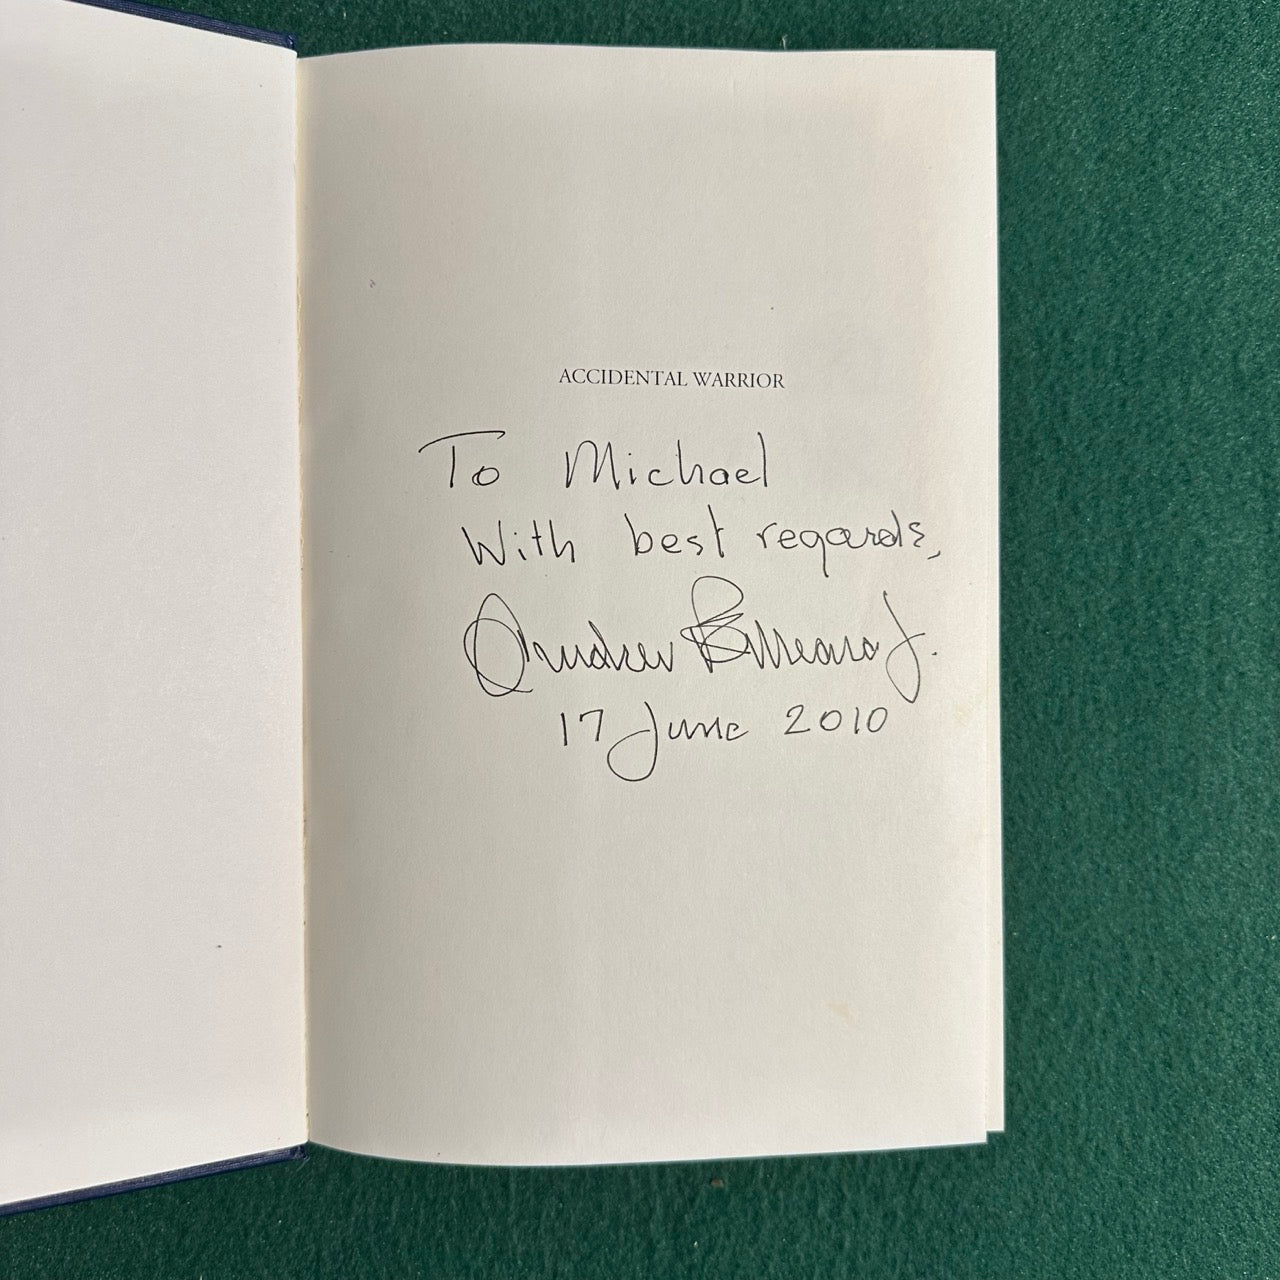 ACCIDENTAL WARRIOR
To Michael
With best regards,
Andrew
17 June 2010